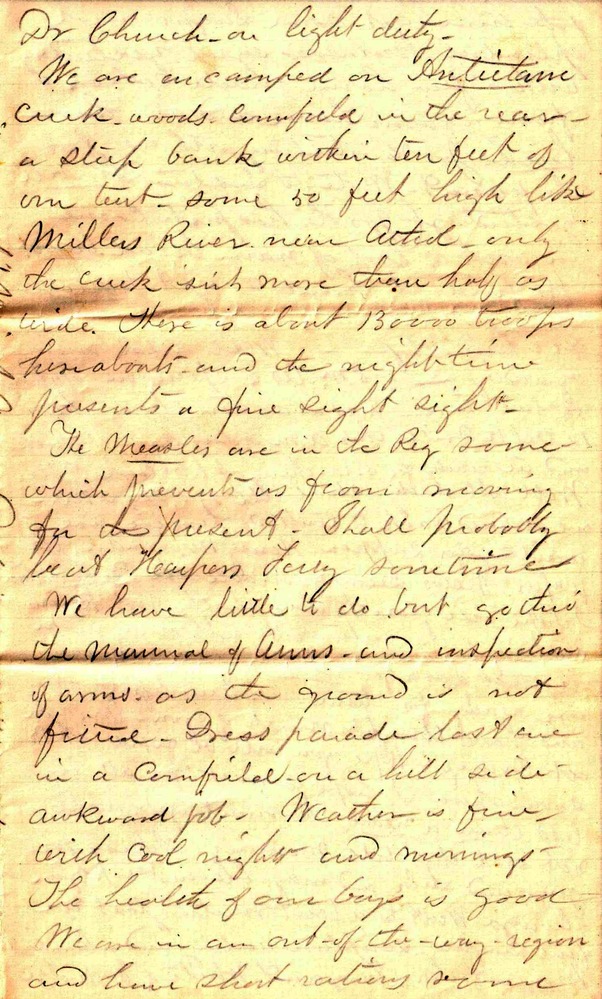 Dr Church - on light duty -
We are encamped on Antietam
Creek - woods - cornfield in the rear -
a steep bank within ten feet of
our tent - some 50 feet high like
Millers River near Athol - only
the creek isnt more than half as
wide. There is about 130000 troops
hereabouts - and the night time
presents a fine sight sight -
The Measles are in the Reg some -
which prevents us from moving
for the present - Shall probably
be at Harpers Ferry sometime
We have little to do but go thro
the manual of Arms - and inspection
of arms - as the ground is not
fitted - Dress parade last eve
in a Cornfield - on a hill side -
awkward job - Weather is fine -
with cool night and mornings -
The health of our boys is good
We are in an out-of-the-way-region
and have short rations some